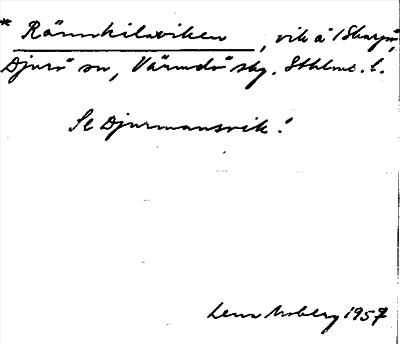 * Rännkilaviken, vik å Skarpö,
Djurö sn, Värmdö skg. Sthlms l.
Se Djurmansvik!
Lena Moberg 1957